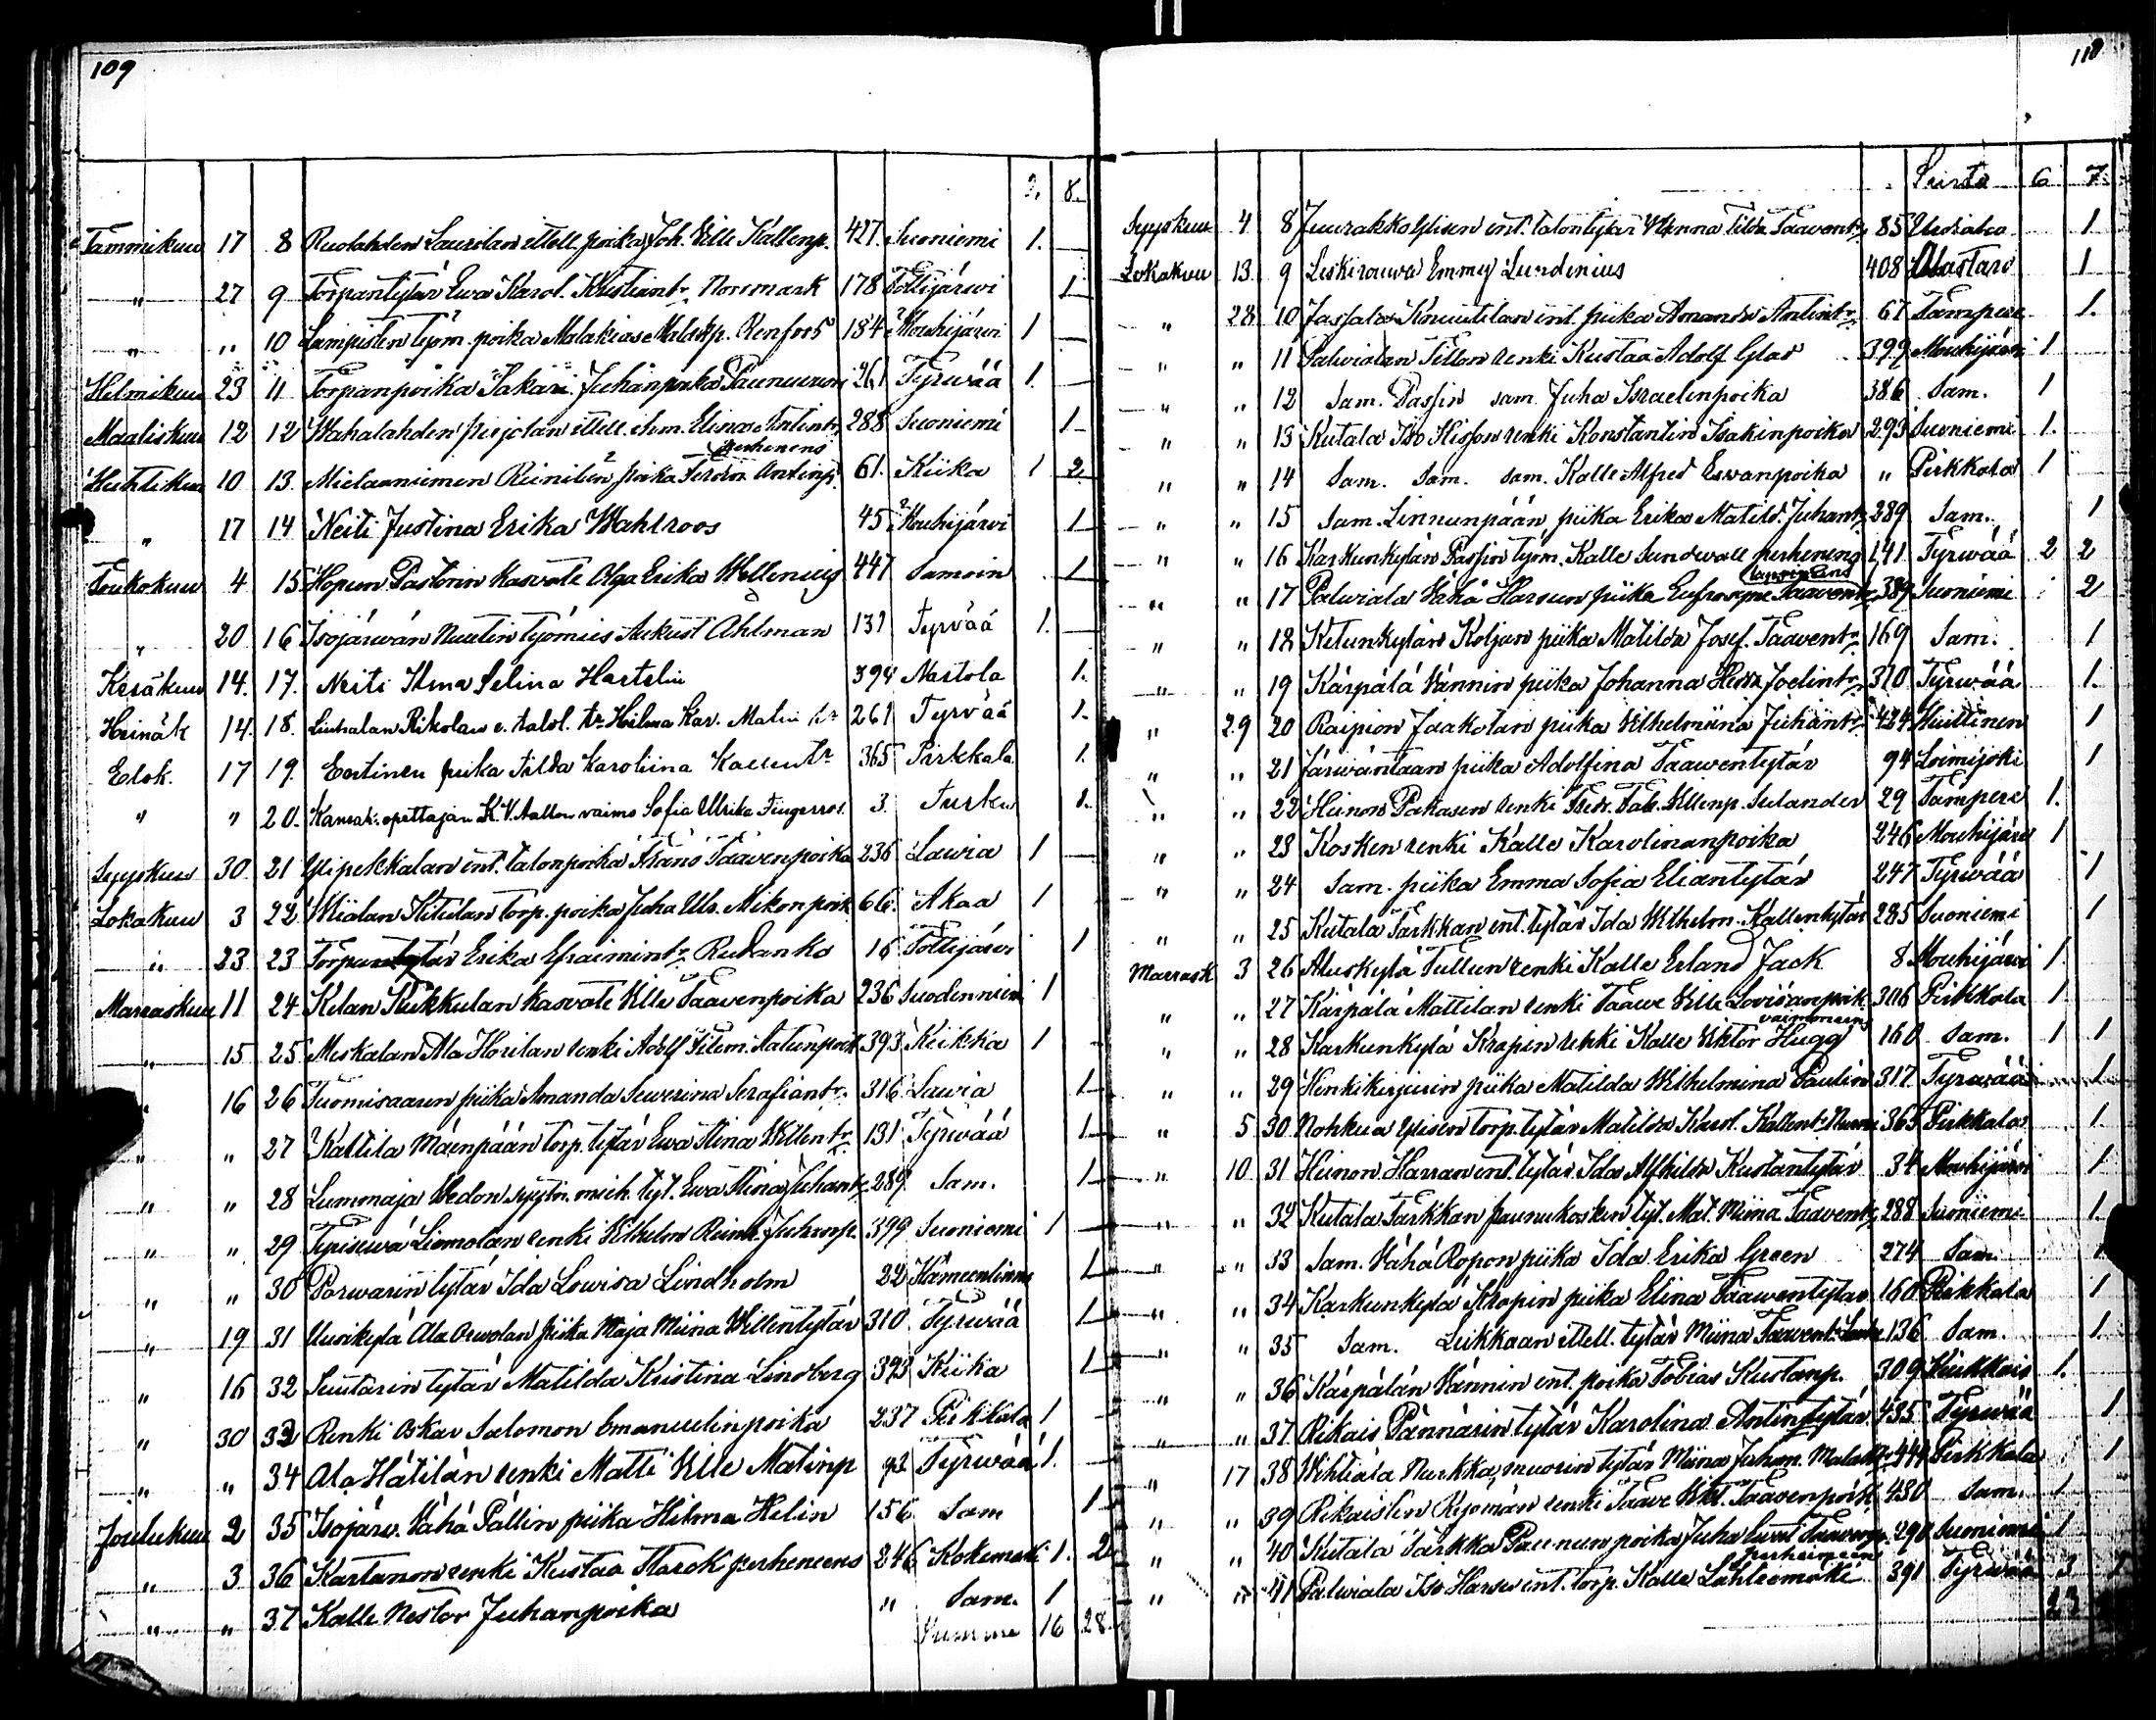 109
7. 8.
Tammikuu 17 8 Ruolahden Laurilan ittell. poika Joh. Ville Kallenp. 427. Suoniemi 1.
" 27 9 Torpantytär Ewa Karol. Kristiantr. Norrmark 178 Tottijärwi 1
" " 10 Lampisten työm. poika Malakias Malakp. Renfors 184 Mouhijärwi 1
Helmikuu 23 11 Torpanpoika Sakari Juhanpoika Paunuvuori 261 Tyrwää 1.
Maaliskuu 12 12 Wahalahden pirjolan ittell. ihm. Elina Antintr. 288 Suoniemi 1
perhenens
Huhtikuu 10 13. Mielaanniemen Reinilän poika Ferdin. Antinp. 61. Kiika 1 2
" 17 14 Neiti Justina Erika Wahlroos 45 Mouhijärvi 1
Toukokuu 4 15 Hopun Pastorin kasvate Olga Erika Wellenius 447 Samoin 1
" 20 16 Isojärwän Nuutin työmies August Ahlman 131 Tyrvää 1.
Kesäkuu 14. 17. Neiti Ilma Selina Hartelin 394 Nastola 1.
Heinäk 14. 18. Liuhalan Rikolan e. talol. tr. Hilma Kar. Matin tr 261 Tyrvää 1.
Elok. 17 19. Eertinen piika Tilda Karoliina Kallentr 365 Pirkkala 1.
" " 20. Kansak. opettajan K. V. Aallon vaimo Sofia Ulrika Fingerroos. 3. Turku 1.
Syyskuu 30 21 Ylipekkalan ent. talonpoika Frans Taavenpoika 236 Lawia 1
Lokakuu 3 22 Wiialan Kitulan torp. poika Juha Ul. Mikonpoik 66. Akaa 1
" 23 23 Torpantytär Erika Efraimintr. Rudanko 16 Tottijärwi 1
Marraskuu 11 24 Kilan Heikkulan kasvate Ville Taavenpoika 236 Suodenniemi 1
" 15 25 Meskalan Ala Horilan renki Adolf Filem. Aatunpoik 393 Kiikka 1
" 16 26 Tuomisaaren piika Amanda Seweriina Serafiantr. 316 Lawia 1
" " 27 Kattila Mäenpään torp. tytär Ewa Stina Willentr. 131 Tyrwää 1
" " 28 Lummaja Uedon syytin. mieh. tyt. Ewa Stina Juhantr. 289 Sam. 1
" " 29 Typisewä Liomolan renki Wilhelm Reinh. Juhanp. 399 Suoniemi 1
" " 30 Porwarin tytär Ida Lowisa Lindholm 22 Hämeenlinna 1
" 19 31 Uusikylä Ala Orwolan piika Maja Miina Willentytär 310 Tyrwää 1
" 16 32 Suutarin tytär Matilda Kristina Lindberg 393 Kiika 1
" 30 33 Renki Oskar Salomon Emanuelinpoika 237 Pirkkala 1
" " 34 Ala Hätilän renki Matti Ville Matinp 92 Tyrwää 1.
Joulukuu 2 35 Isojärw. Vähä Pällin piika Hilma Helin 156 Sam 1
" 3 36 Kartanon renki Kustaa Starck perheneens 246 Kokemäki 1. 2
" " 37 Kalle Nestor Juhanpoika " Sam. 1
Summa 16 28
110
Siirto 6 7.
Syyskuu 4 8 Juurakko Ylisen ent. talontytär Wenna Tilda Taaventr. 85 Uusialua 1
Lokakuu 13. 9 Leskirouwa Emmy Lundenius 408 Alastaro 1
" 28 10 Jassala Knuutilan ent. piika Amanda Antintr. 67 Tampere 1.
" " 11 Palwialan Tillon renki Kustaa Adolf Glad 399 Mouhijärvi 1
" " 12 Sam. Passin sam. Juha Israelinpoika 386 Sam. 1
" " 13 Kutala Iso Hisson renki Konstantin Isakinpoika 293 Suoniemi 1.
" " 14 Sam. Sam. sam. Kalle Alfred Ewanpoika " Pirkkala 1
" " 15 Sam. Linnunpään piika Erika Matild. Juhantr. 289 Sam. 1
" " 16 Karkunkylän Passin työm. Kalle Sundwall perhenens 141. Tyrwää 2 2
" " 17 Palwiala Vähä Harsun piika Eufrosyne Taaventr. 389 Suoniemi 2
" " 18 Ketunkylän Koljan piika Matilda Josef. Taaventr. 169 Sam. 1
" " 19 Kärpälä Vännin piika Johanna Hedda Joelintr. 310 Tyrwää 1.
" 29 20 Raipion Jaakolan piika Vilhelmiina Juhantr. 424 Huittinen 1
" " 21 Järwäntaan piika Adolfina Taawentytär 94 Loimijoki 1
" " 22 Heinon Pakasen renki Fredr. Tab. Villenp. Selander 29 Tampere 1.
" " 23 Kosken renki Kalle Karolinanpoika 246 Mouhijärv 1
" " 24 Sam. piika Emma Sofia Eliantytär 247 Tyrwää 1
" " 25 Kutala Tarkkan ent. tytär Ida Wilhelm. Kallentytär 285 Suoniemi 1
Marrask 3 26 Aluskylä Tullun renki Kalle Erland Jack 8 Mouhijärwi 1.
" " 27 Kärpälä Mattilan renki Taawe Ville Lovisanpoik 306 Pirkkala 1.
vaimoneens
" " 28 Karkunkylä Krapin renki Kalle Viktor Hugg 160 Sam. 1 1
" " 29 Henkikirjurin piika Matilda Wilhelmina Paulin 317. Tyrwää 1
" 5 30. Nohkua Ylisen torp. tytär Matilda Karol. Kallentr. Nurmi 365 Pirkkala 1.
" 10 31 Heinon Harran ent. tytär Ida Alfhilda Kustantytär 34 Mouhijärvi 1
" " 32 Kutala Tarkkan Paunukosken tyt. Mat. Miina Taaventr. 288 Suoniemi 1.
" " 33 Sam. Vähä Ropon piika Ida Erika Green 274 Sam. 1
" " 34 Karkunkylä Krapin piika Elina Taawentytär 160 Pirkkala 1
" " 35 Sam. Liikkaan ittell. tytär Miina Taawentr. 136 Sam. 1.
" " 36 Kärpälän Vännin ent. poika Tobias Kustanp. 309 1.
" " 37 Rikais Pännärin tytär Karolina Antintytär 435 Tyrwää 1
" 17 38 Wihtiälä Nurkka, muorin tytär Miina Juhan. 444 Pirkkala 1
" " 39 Rikaisten Kyömän renki Taave Vikt. Taavenpoik 430 Sam. 1
" " 40 Kutala Tarkka Paunun poika Juha 290 Suoniemi 1
perheineen
" " 41 Palwiala Iso Harsu ent. torp. Kalle Lähteenmäki 391 Tyrwää 3 1
23